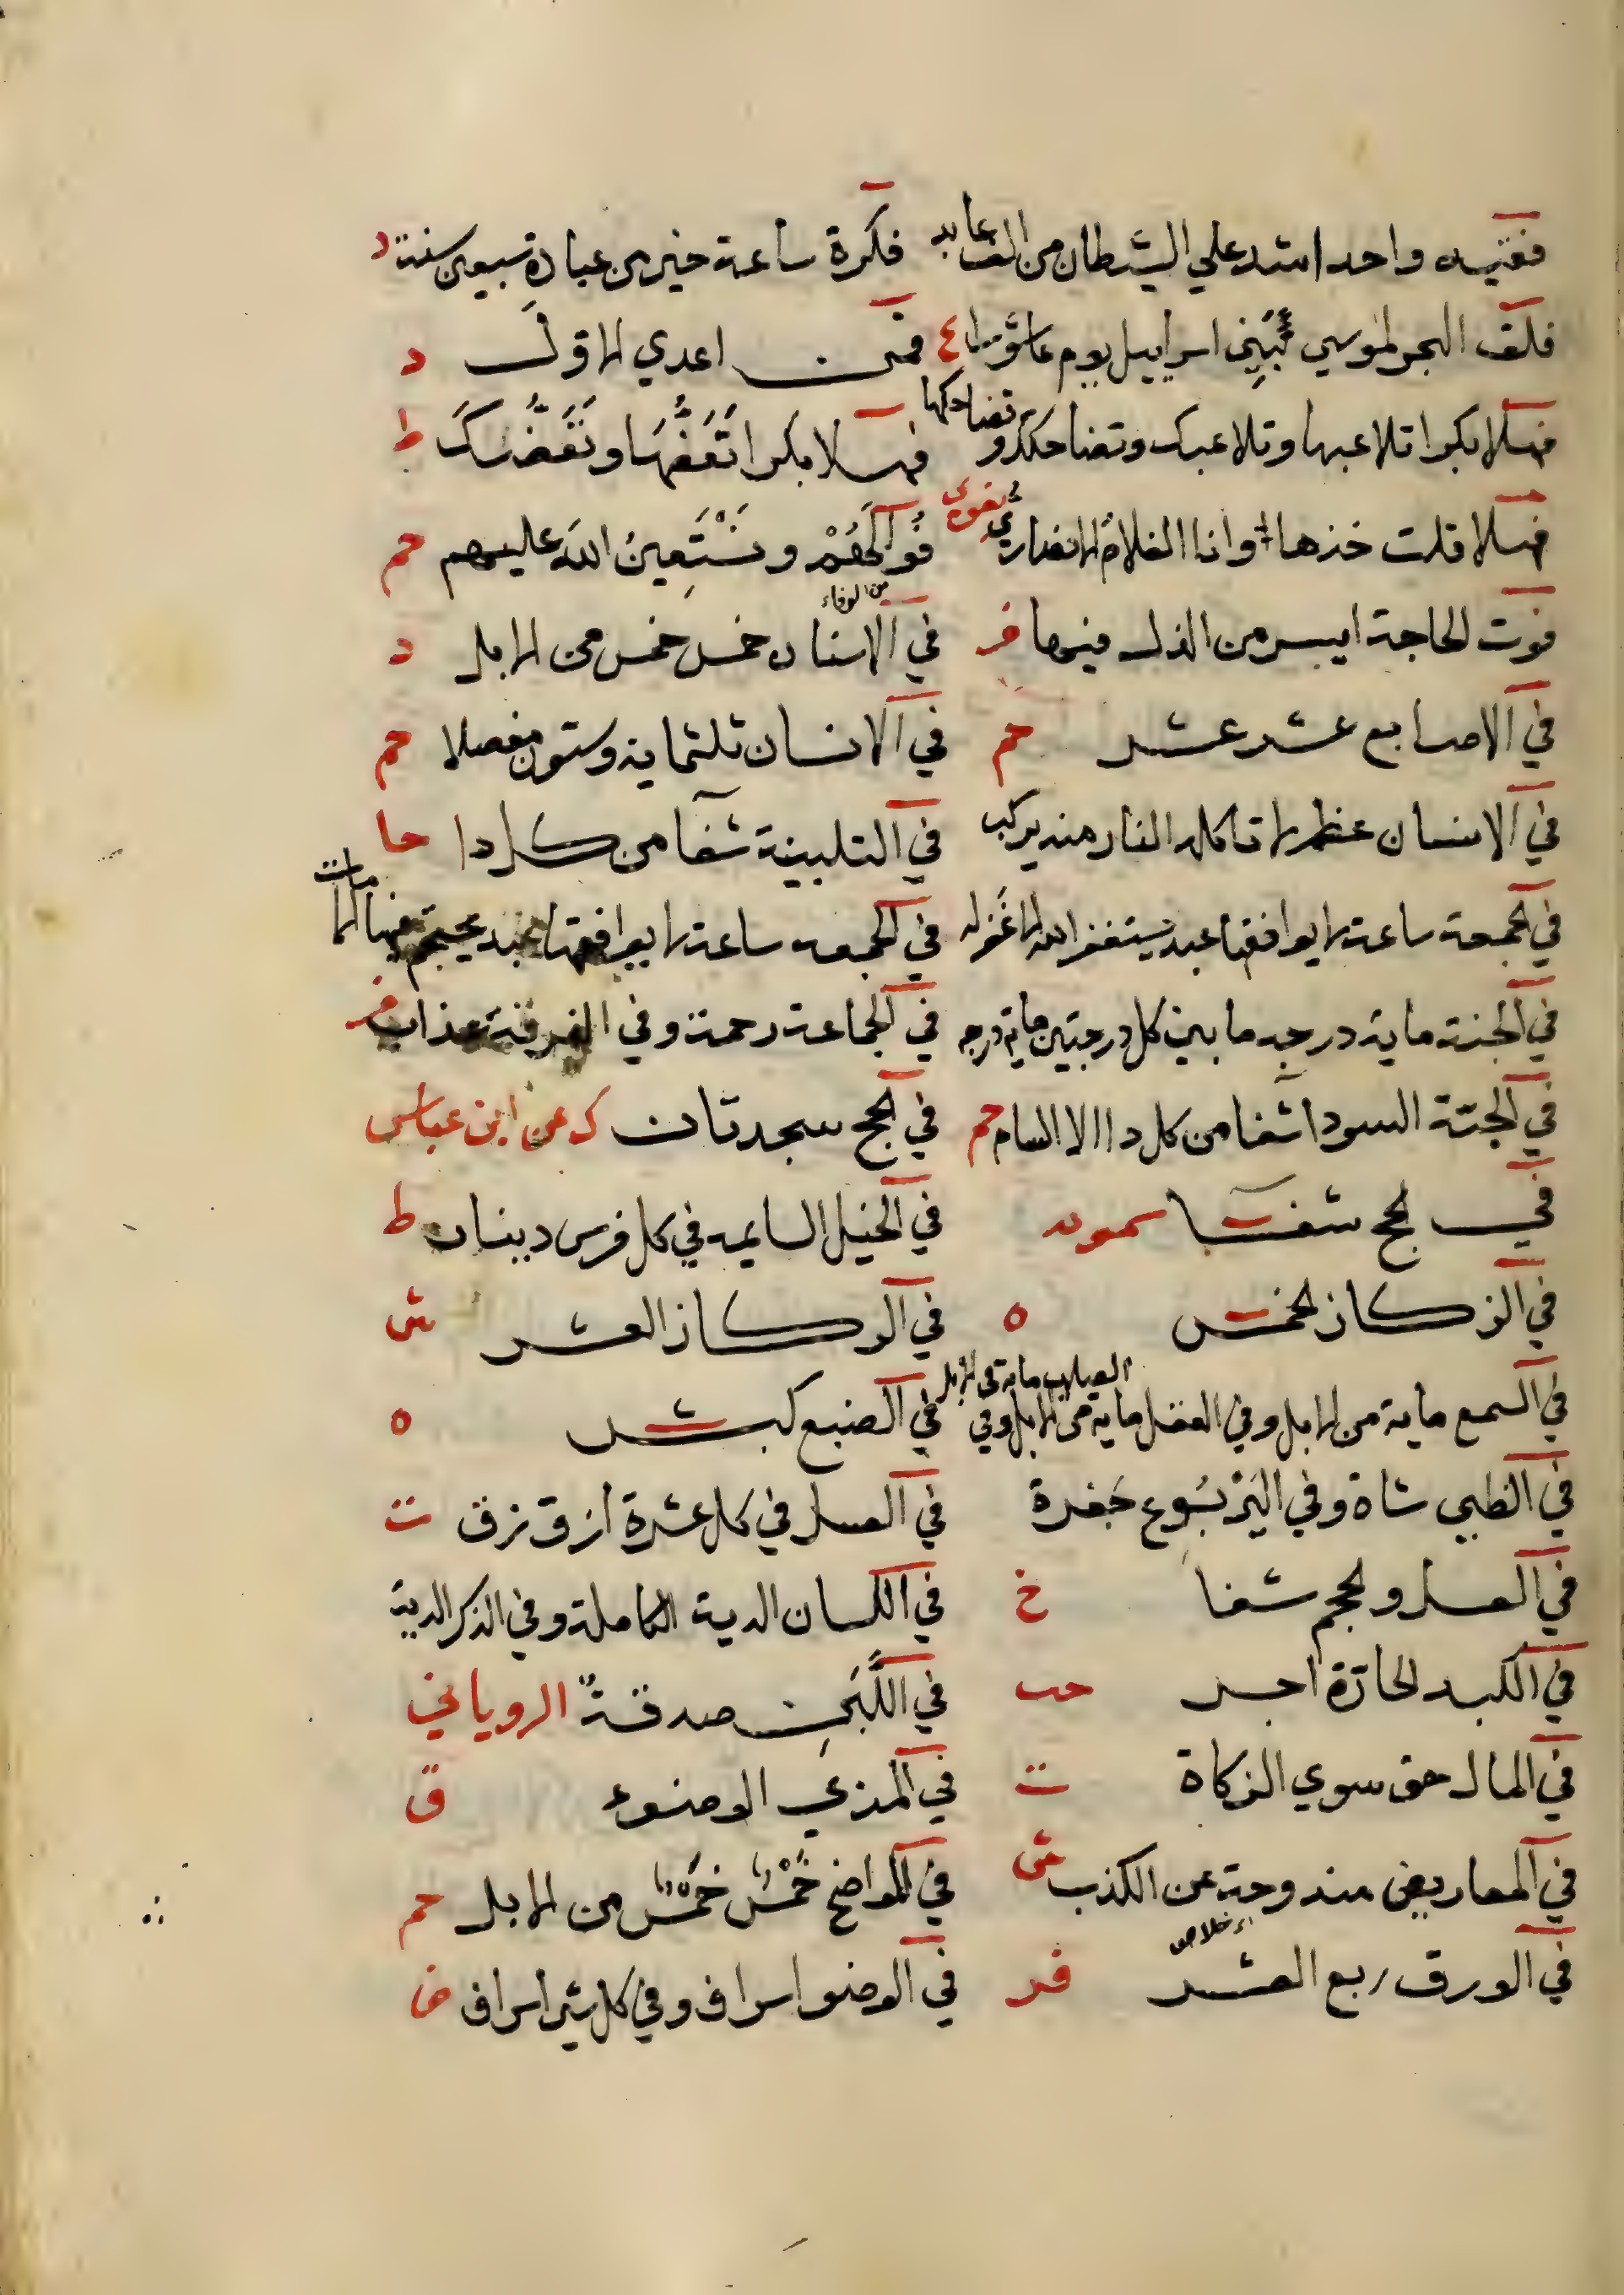 فقيه واحد اشد علي الشيطان من الف عابد فكرة ساعة خير من عبادة سبعين سنة د
فلق البحر لموسي وبني اسراييل يوم عاشورا ع فمن اعدي الاول د
فهلا بكرا تلاعبها وتلاعبك وتضاحكك وتضاحكها فهلا بكرا تعضها وتعضك ط
فهلا قلت خذها وانا الغلام الانصاري فوالهم ونستعين الله عليهم حم
فوت الحاجة ايسر من الذل فيها فر في الاسنان خمس خمس من الابل د
في الاصابع عشر عشر حم في الانسان ثلثماية وستون مفصلا حم
في الانسان عظم لا تاكله النار منه يركب في التلبينة شفا من كل دا حا
في الجمعة ساعة لا يوافقها عبد يستغفر الله الا غفر له في الجمعه ساعة لا يوافقها عبد يحتجم فيها الا مات
في الجنة ماية درجه ما بين كل درجتين ماية درجه في الجماعة رحمة وفي الفرقة عذاب فر
في الحبة السودا شفا من كل دا الا السام حم في الحج سجدتان ك عن ابن عباس
في الحجم شفا سمويه في الخيل السايمه في كل فرس دينار ط
في الركاز الخمس ه في الركاز العشر ش
في السمع ماية من الابل وفي العقل ماية من الابل وفي في الضبع كبش ه
في الظبي شاة وفي اليربوع جفرة في العسل في كل عشرة ازق زق ت
في العسل والحجم شفا خ في اللسان الدية الكاملة وفي الذكر الدية
في الكبد الحارة اجر حب في اللبن صدقة الروياني
في المال حق سوي الزكاة ت في المذي الوضوء ق
في المعاريض مندوحة عن الكذب ش في المواضح خمس خمس من الابل حم
في الورق ربع العشر قد في الوضو اسراف وفي كل شي اسراف ض